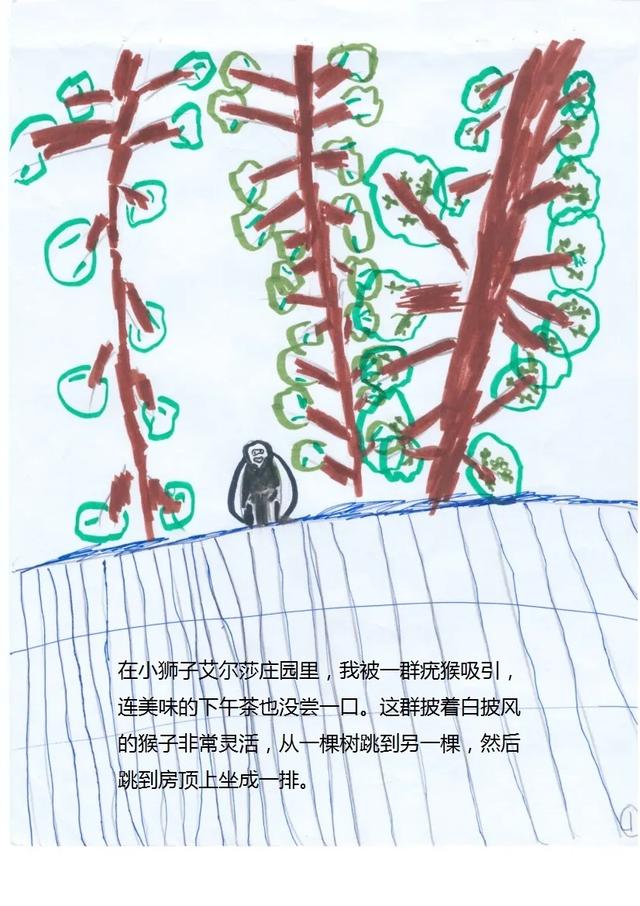 在小狮子艾尔莎庄园里，我被一群疣猴吸引，
连美味的下午茶也没尝一口。这群披着白披风
的猴子非常灵活，从一棵树跳到另一棵，然后
跳到房顶上坐成一排。
1